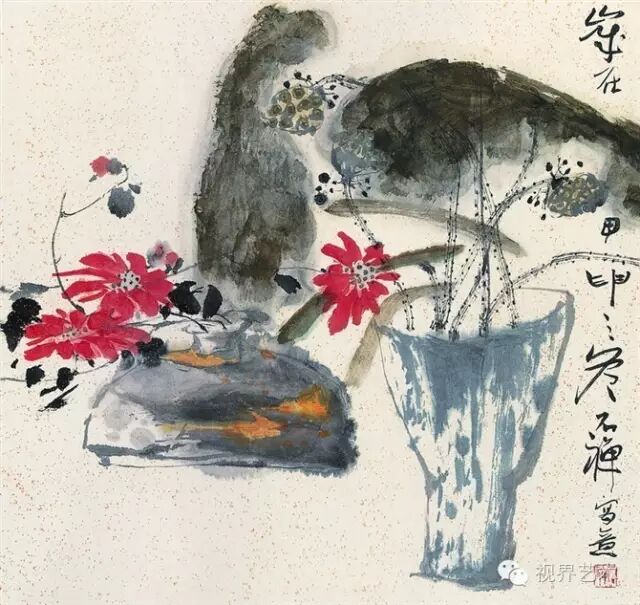 岁在甲申之冬石禅写意
视界艺